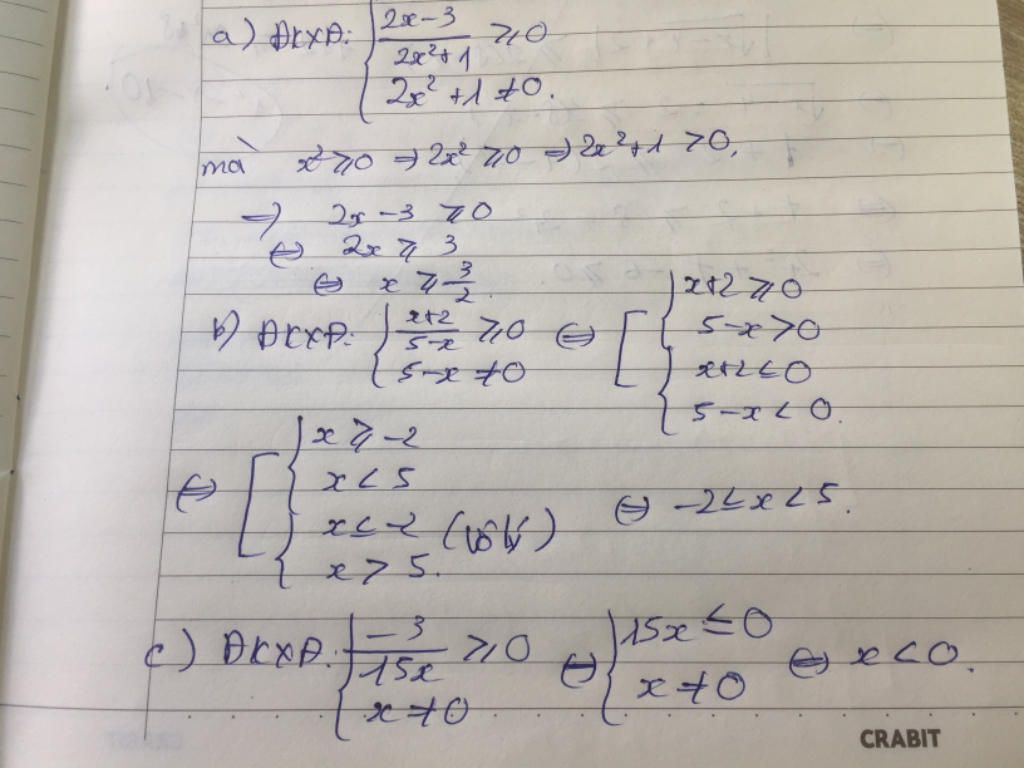 a) ĐKXĐ: { (2x-3)/(2x²+1) ⩾ 0
2x²+1 ≠ 0.
mà x² ⩾ 0 ⇒ 2x² ⩾ 0 ⇒ 2x²+1 > 0.
⇒ 2x-3 ⩾ 0
⇔ 2x ⩾ 3
⇔ x ⩾ 3/2.
b) ĐKXĐ: { (x+2)/(5-x) ⩾ 0
5-x ≠ 0
⇔ [ { x+2 ⩾ 0
5-x > 0
{ x+2 ≤ 0
5-x < 0.
⇔ [ { x ⩾ -2
x < 5
{ x ≤ -2 (vô lý)
x > 5.
⇔ -2 ≤ x < 5.
c) ĐKXĐ: { -3/15x ⩾ 0
x ≠ 0
⇔ { 15x ≤ 0
x ≠ 0
⇔ x < 0.
CRABIT